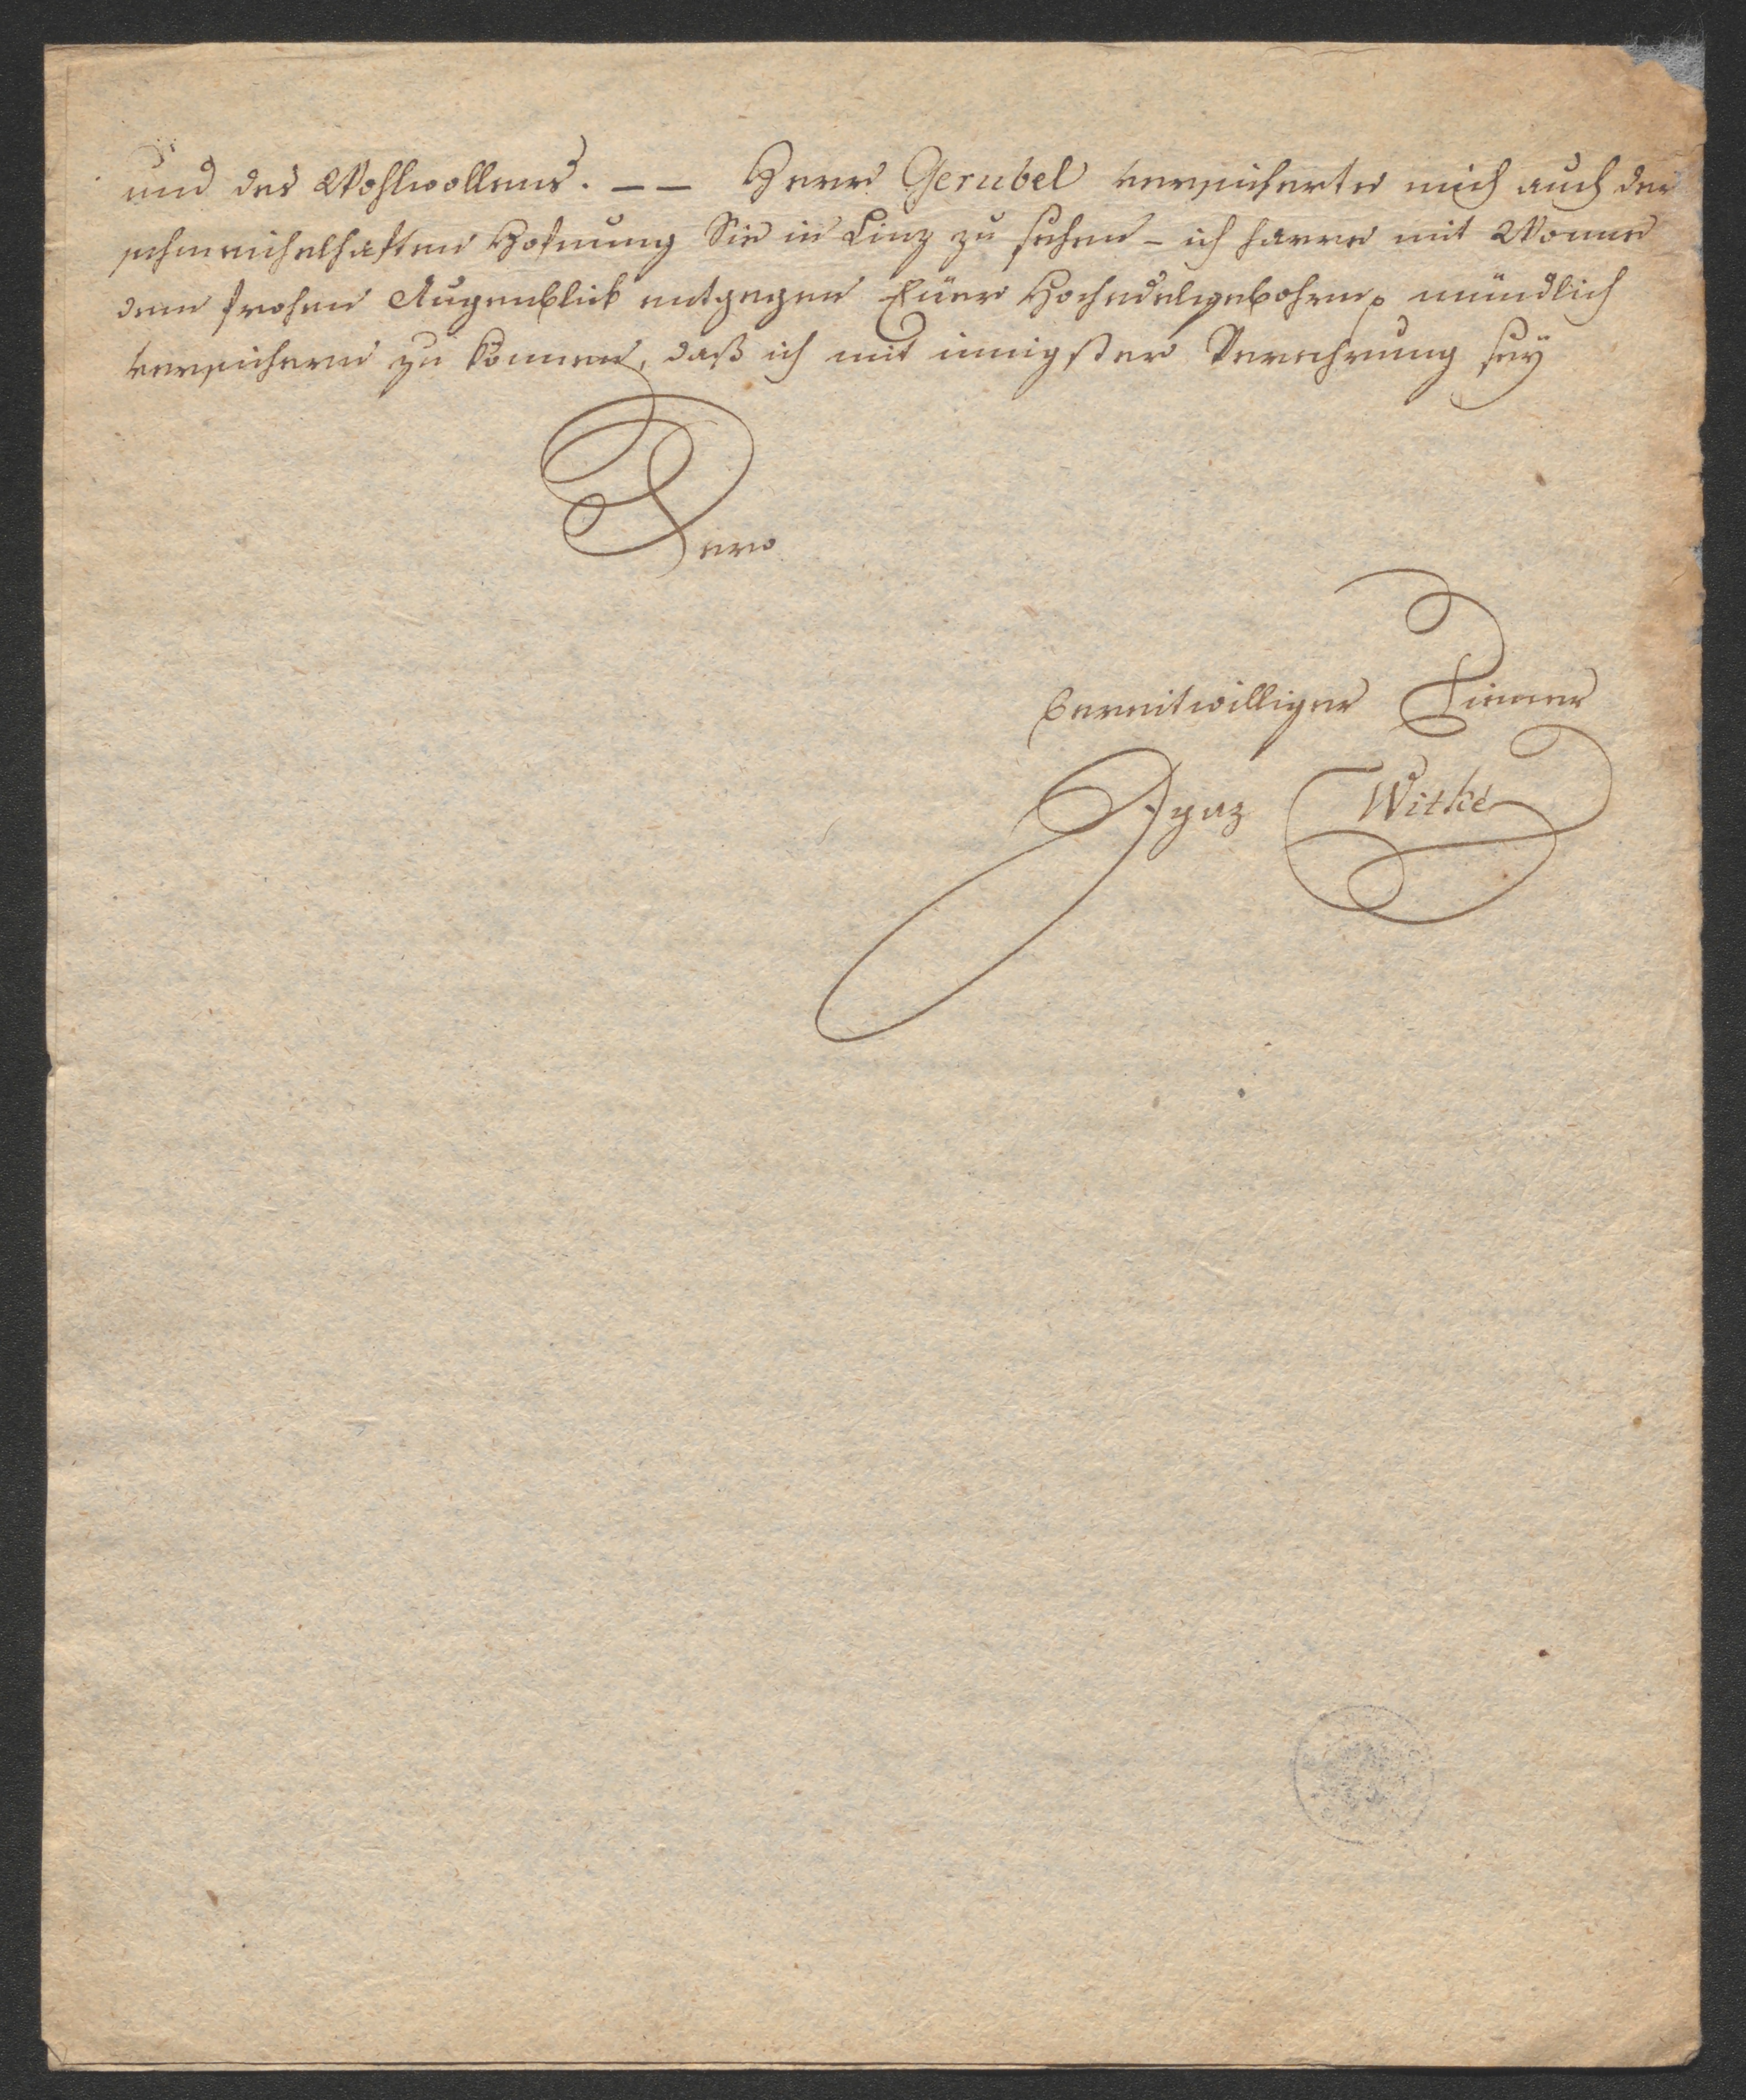 und des Wohlwollens. — — Herr Gerubel versicherte mich auch der
schmeichelhaften Hofnung Sie in Linz zu sehen – ich harre mit Wonne
dem frohen Augenblick entgegen Euer Hochedelgebohrn mündlich
versichern zu können, daß ich mit innigster Verehrung sey
Dero
bereitwilliger Diener
Ignaz Witke